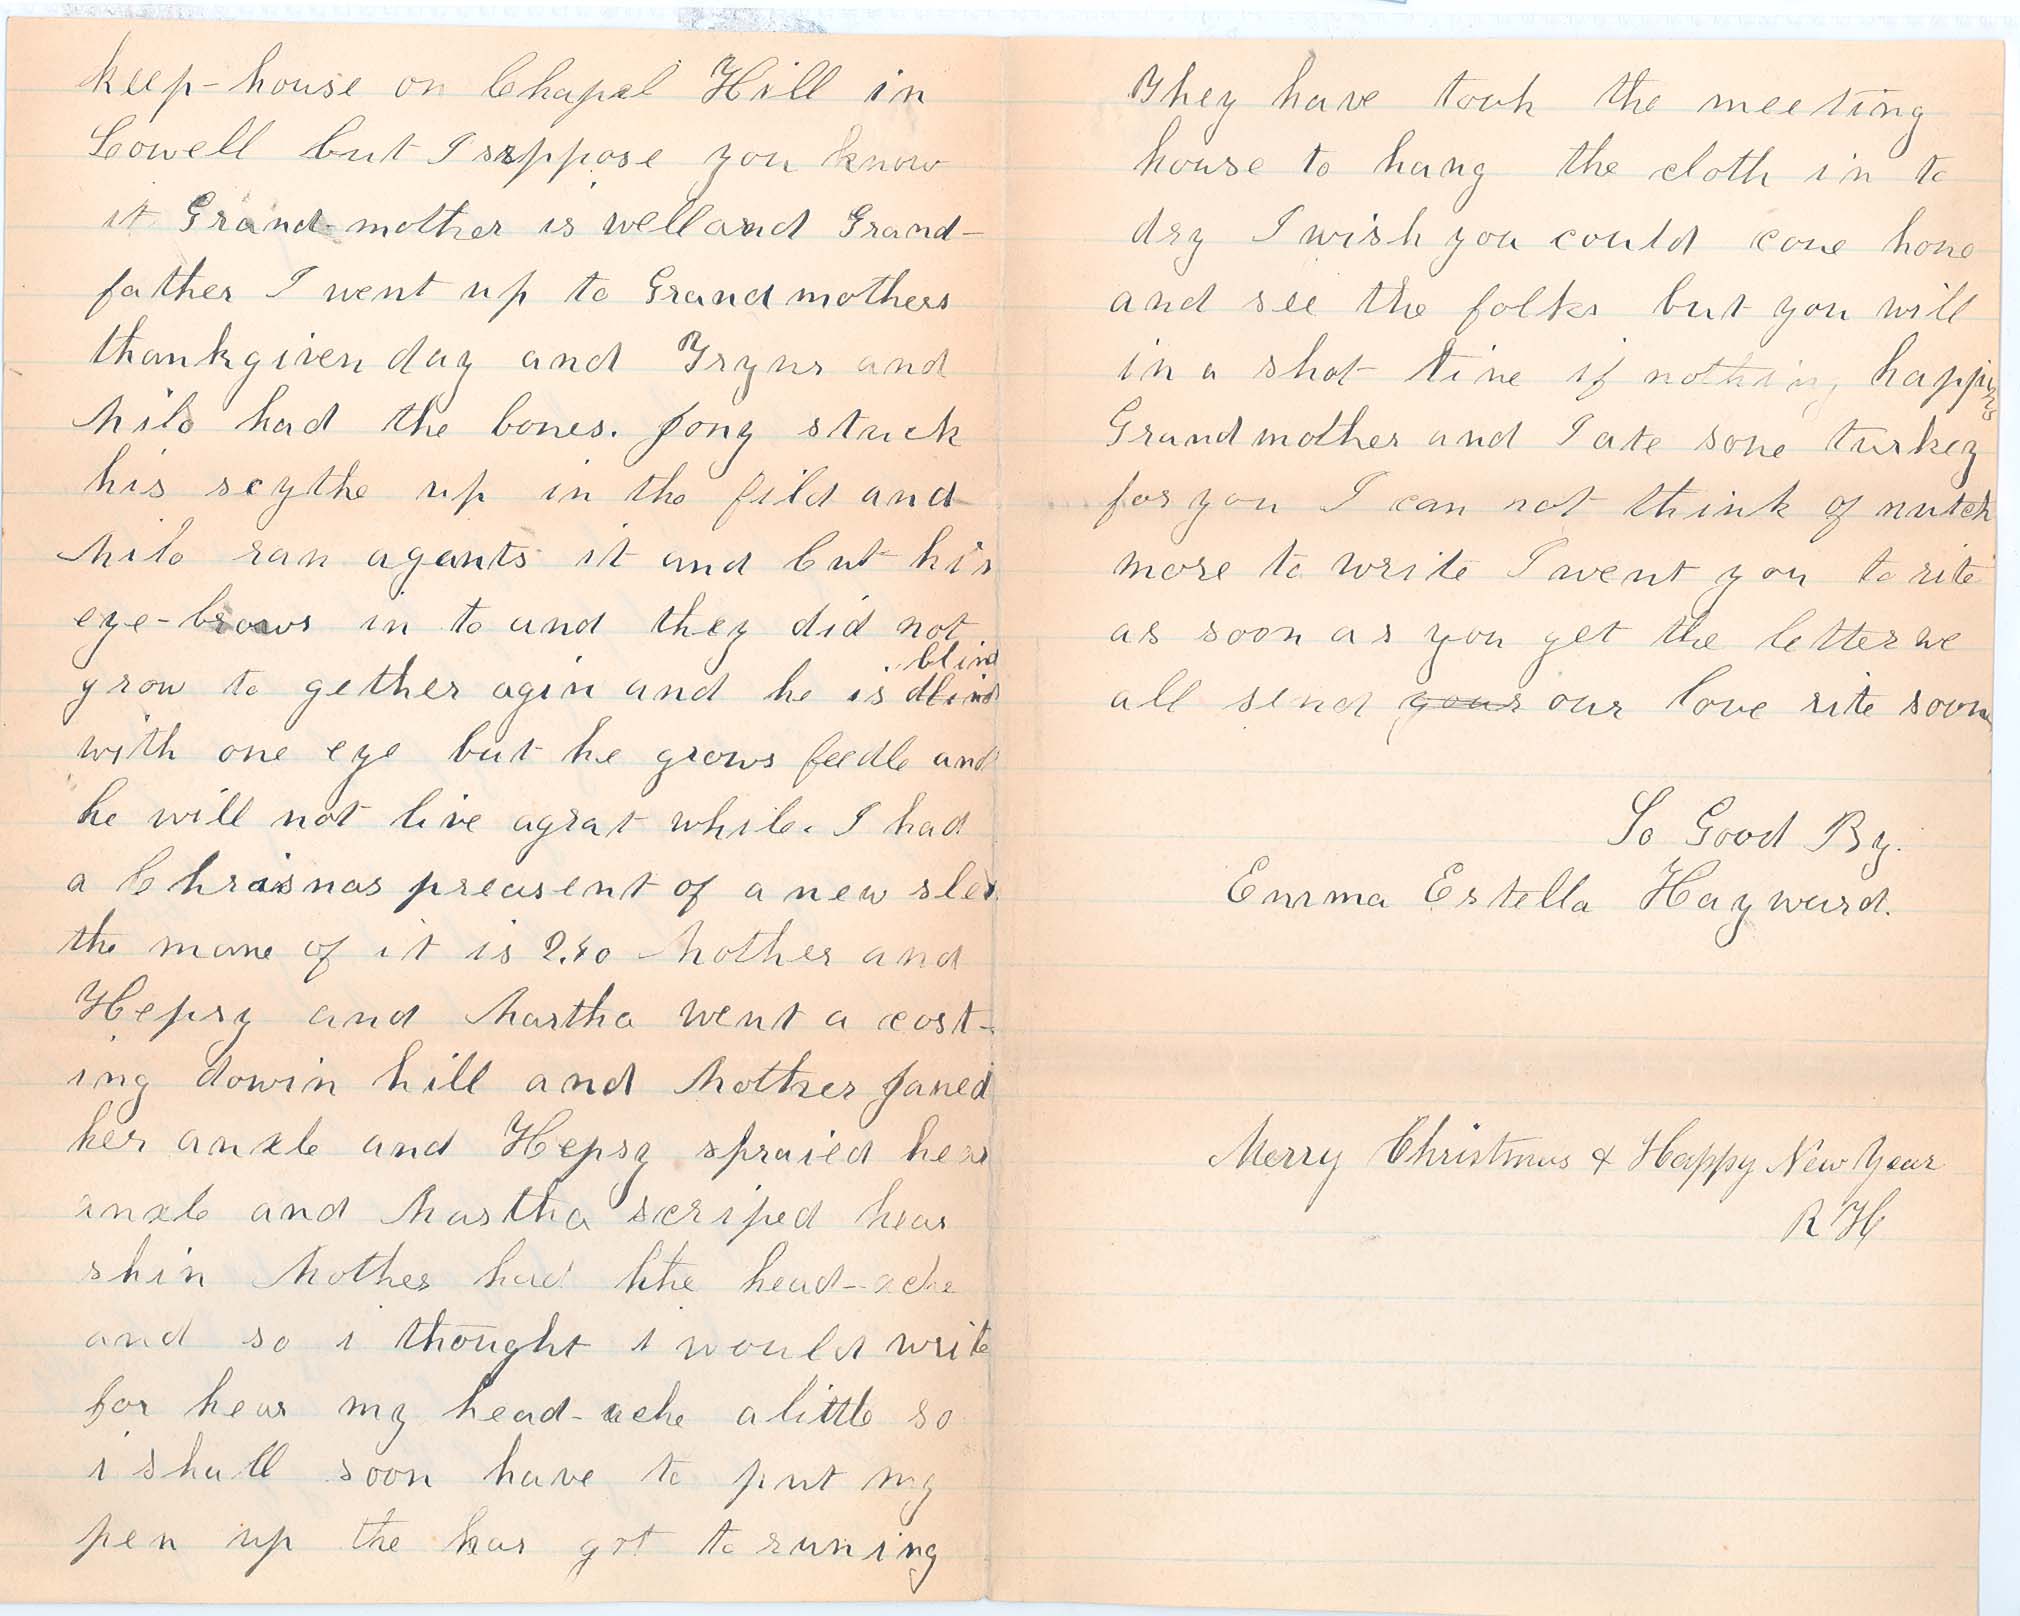 keep-house on Chapel Hill in
Lowell but I suppose you know
it Grand-mother is well and Grand-
father I went up to Grandmothers
thankgiven day and and
Milo had the bones. Jony stuck
his scythe up in the fild and
Milo ran agants it and cut his
eye-brows in to and they did not
grow to gether agin and he is blind
with one eye but he grows feedle and
he will not live agrat while. I had
a Chrisnas preasent of a new sled
the mane of it is 2.40 Mother and
Hepsy and Martha went a cost-
ing dowin hill and Mother janed
her anxle and Hepsy spraied hear
anxle and Martha scriped hear
shin Mother had the head-ache
and so i thought i would write
for hear my head-ache a little so
i shall soon have to put my
pen up the has got to runing
They have took the meeting
house to hang the cloth in to
dry I wish you could cone hone
and see the folks but you will
in a shot tine if nothing happins
Grandmother and I ate sone turkey
for you I can not think of nutch
more to write I went you to rite
as soon as you get the letter we
all send your our love rite soon
So Good By.
Emma Estella Hayward.
Merry Christmas & Happy New Year
R H